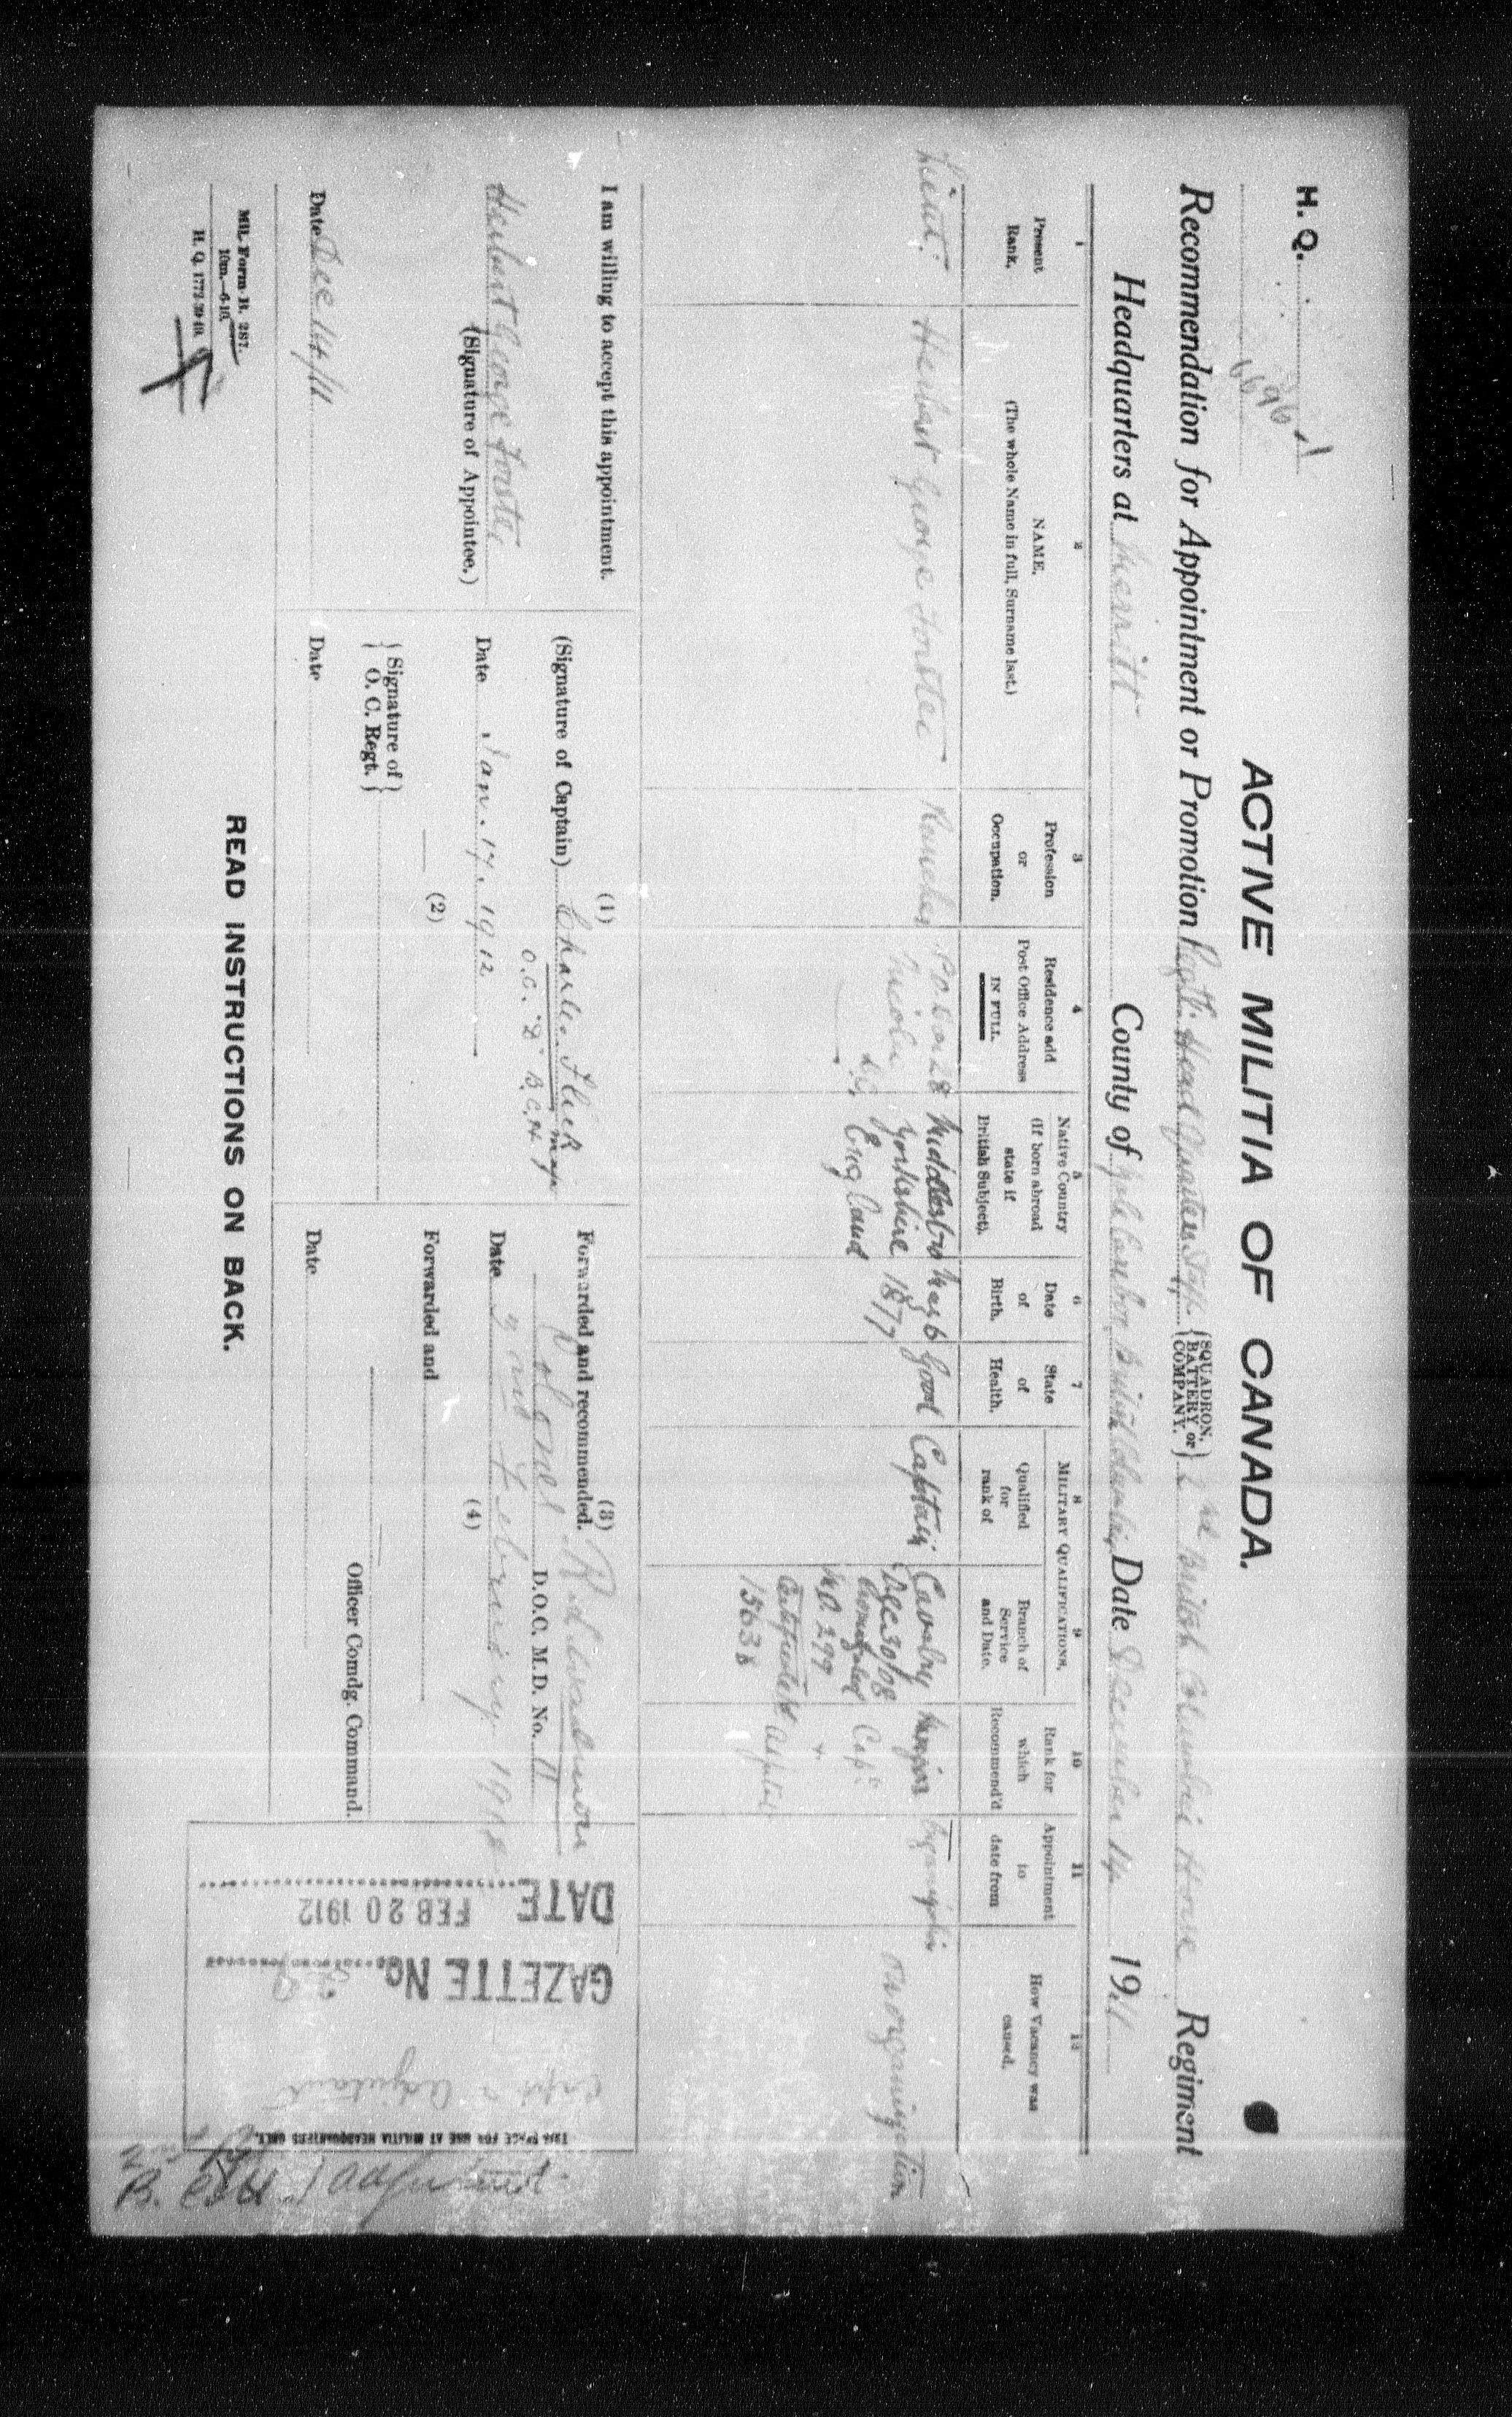 H. Q.
6696-1
ACTIVE MILITIA OF CANADA.
Recommendation for Appointment or Promotion Regtl. Head Quarters Staff. {SQUADRON, BATTERY or COMPANY.} 2nd British Columbia Horse Regiment
Headquarters at Merritt County of Yale Cariboo, British Columbia, Date December 14 1911
1
Present
Rank.
2
NAME.
(The whole Name in full, Surname last.)
3
Profession
or
Occupation.
4
Residence add
Post Office Address
IN FULL.
5
Native Country
(If born abroad
state if
British Subject).
6
Date
of
Birth.
7
State
of
Health.
MILITARY QUALIFICATIONS.
8
Qualified
for
rank of
9
Branch of
Service
and Date.
10
Rank for
which
Recommend'd
11
Appointment
to
date from
12
How Vacancy was
caused.
Lieut.
Herbert George Forster
Rancher
P.O. Box 28
Nicola
B.C.
Middlesbro
Yorkshire
England
May 6
1877
Good
Captain
Cavalry
Dec 30/08
M.O. 299
Certificate
15638
Major
Capt
on organization
I am willing to accept this appointment.
Herbert George Forster
(Signature of Appointee.)
Date Dec 14/11
(1)
(Signature of Captain) Charles Flick Major
O.C. "D" B.C.H.
Date Jan. 17. 1912
(2)
{Signature of O. C. Regt.}
Date
(3)
Forwarded and recommended.
Colonel D.O.C. M.D. No. 11
Date 2nd February 1912
(4)
Forwarded and
Officer Comdg. Command.
Date
DATE FEB 20 1912
GAZETTE No. 29
Capt & Adjutant
THIS SPACE FOR USE AT MILITIA HEADQUARTERS ONLY.
B.C.H. Adjutant.
MIL. Form B. 287.
10m.—6-10.
H. Q. 1772-39-19.
READ INSTRUCTIONS ON BACK.